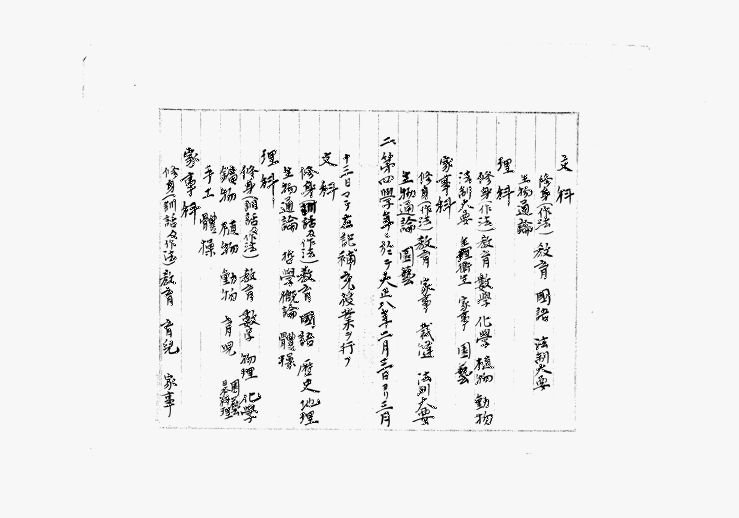 文科
修身(作法)教育 國語 法制大要
生物通論
理科
修身(作法)教育 數學 化學 植物 動物
法制大要 生理衛生 家事 園藝
家事科
修身(作法)教育 家事 裁縫 法制大要
生物通論 園藝
二、第四學年ニ於テ大正八年二月三日ヨリ三月
十三日マデ左記補充授業ヲ行フ
文科
修身(訓話及作法)教育 國語 歷史 地理
生物通論 哲學概論 體操
理科
修身(訓話及作法)教育 數學 物理 化學
鑛物 植物 動物 育児 園藝 料理
手工 體操
家事科
修身(訓話及作法)教育 育兒 家事